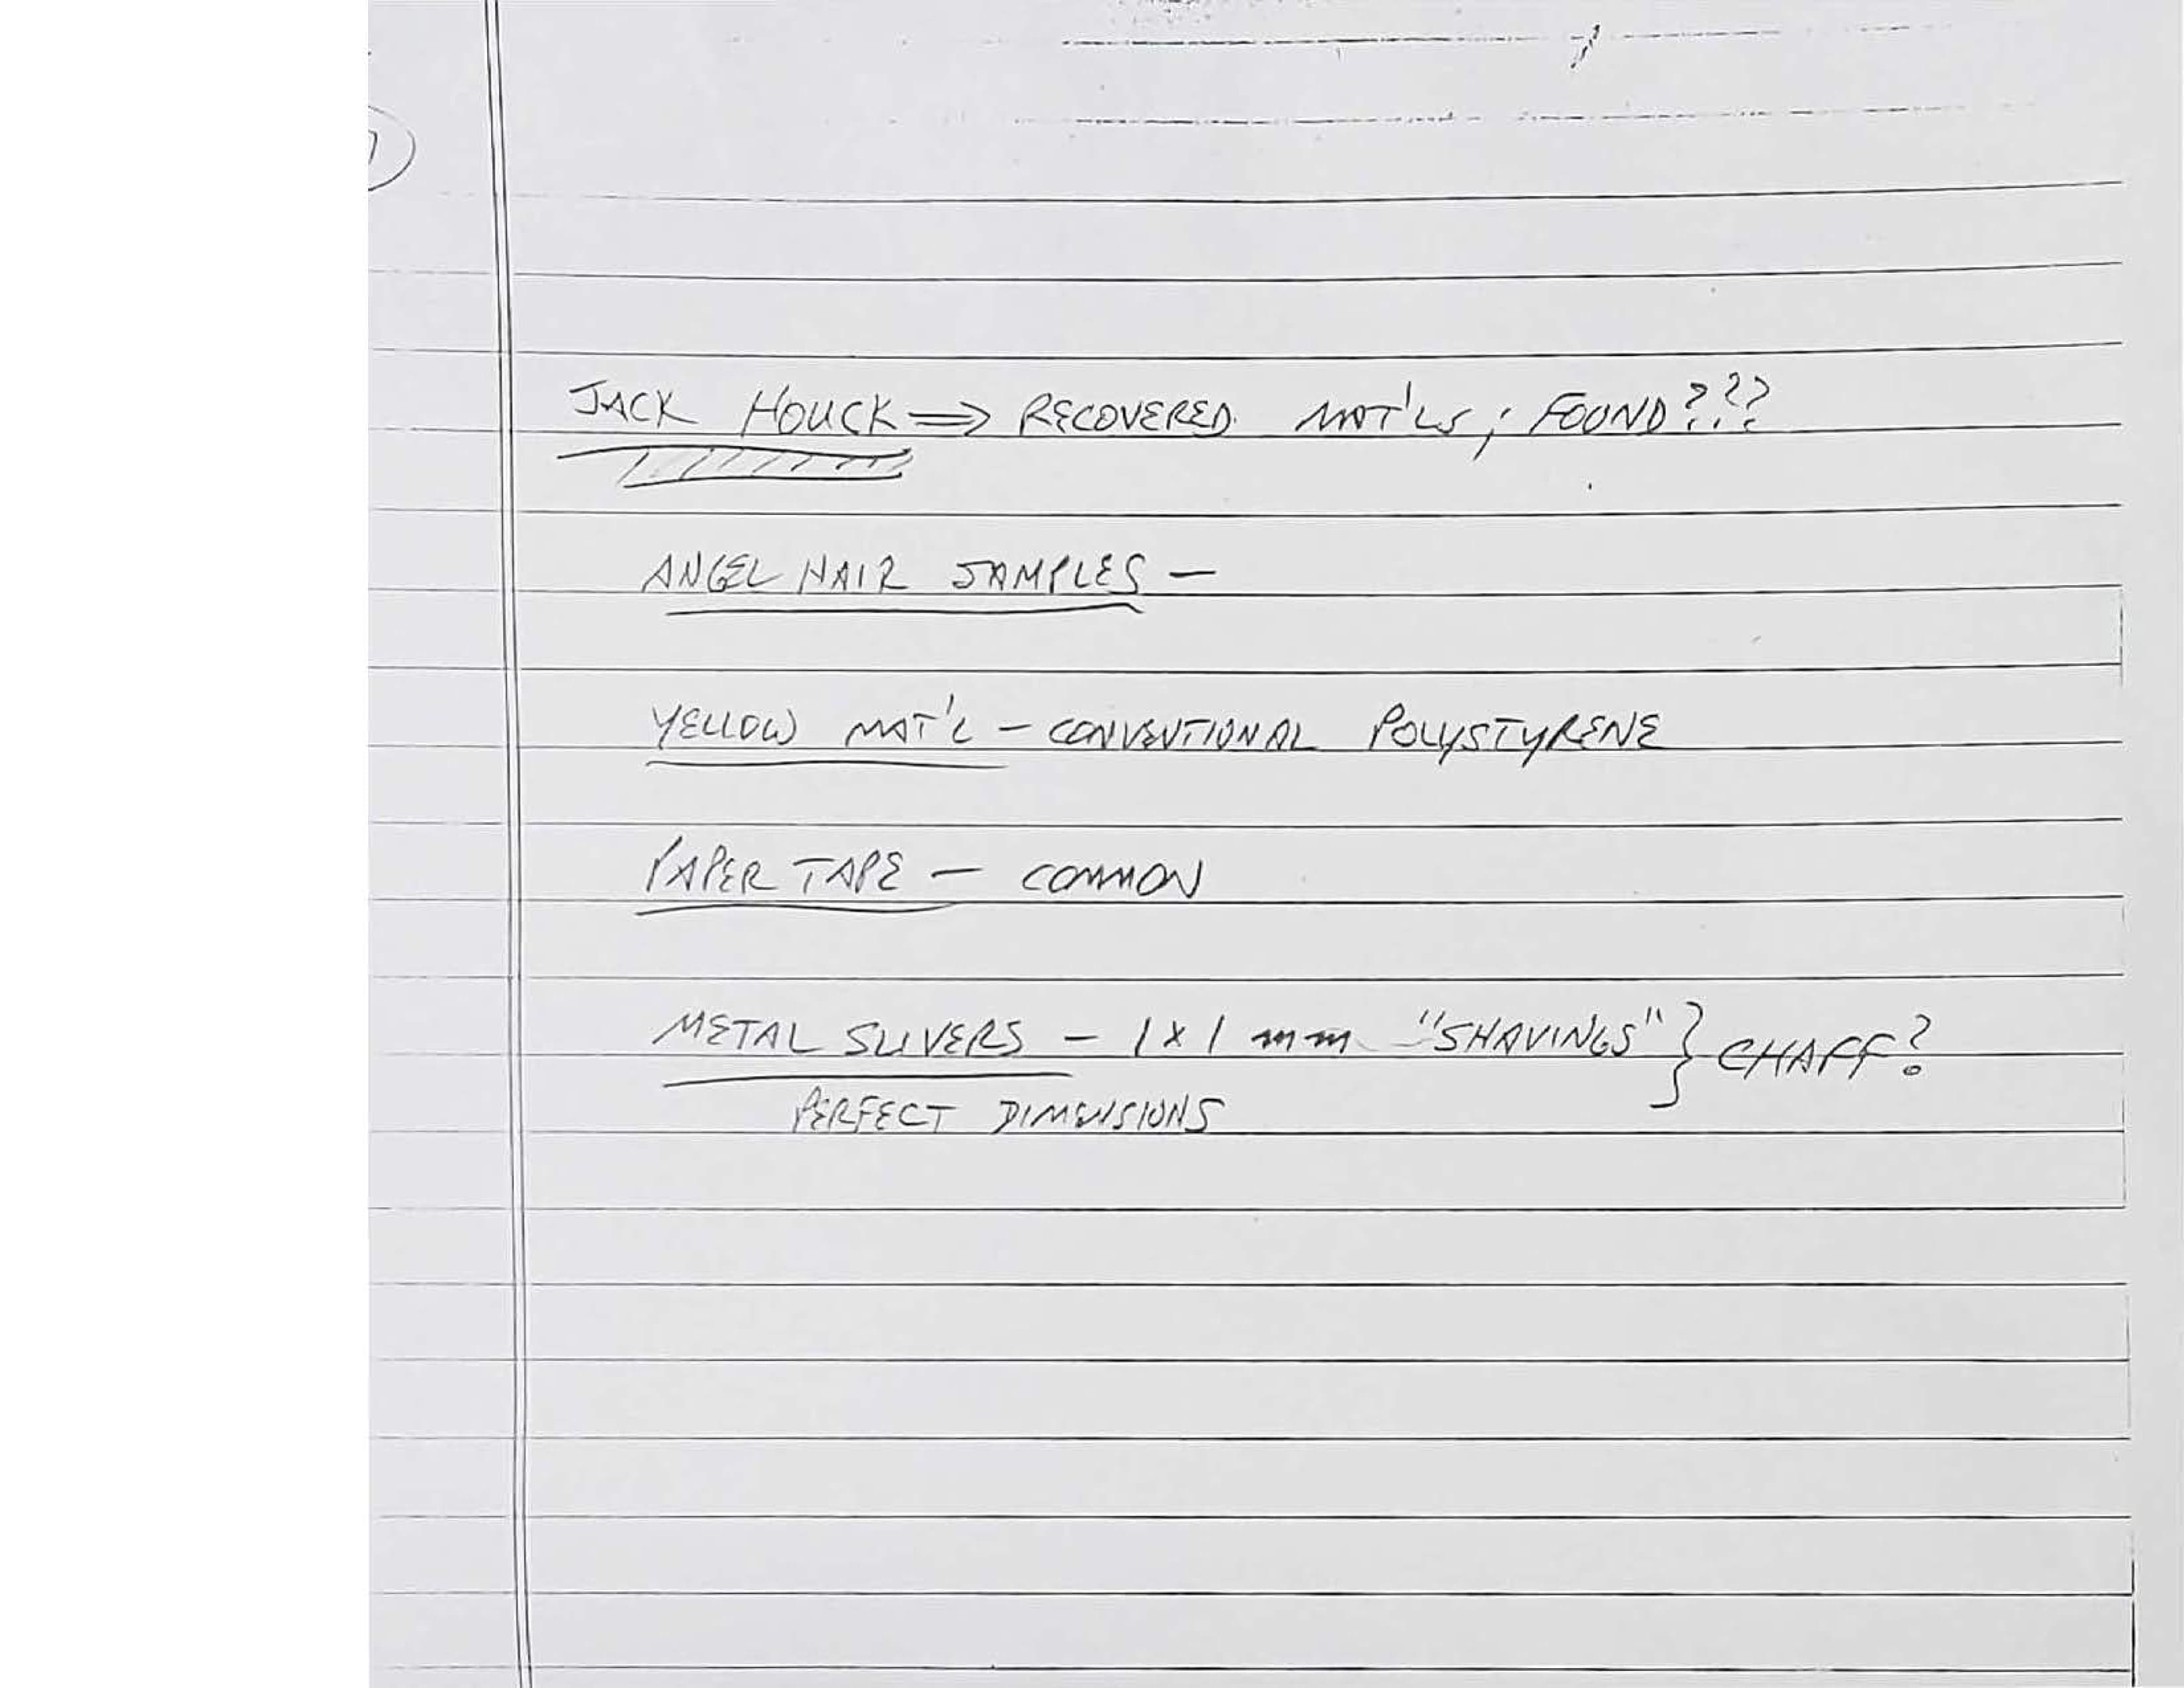 JACK HOUCK ⇒ RECOVERED MAT'LS; FOUND???
ANGEL HAIR SAMPLES —
YELLOW MAT'L - CONVENTIONAL POLYSTYRENE
PAPER TAPE — COMMON
METAL SLIVERS - 1 x 1 mm "SHAVINGS" } CHAFF?
PERFECT DIMENSIONS